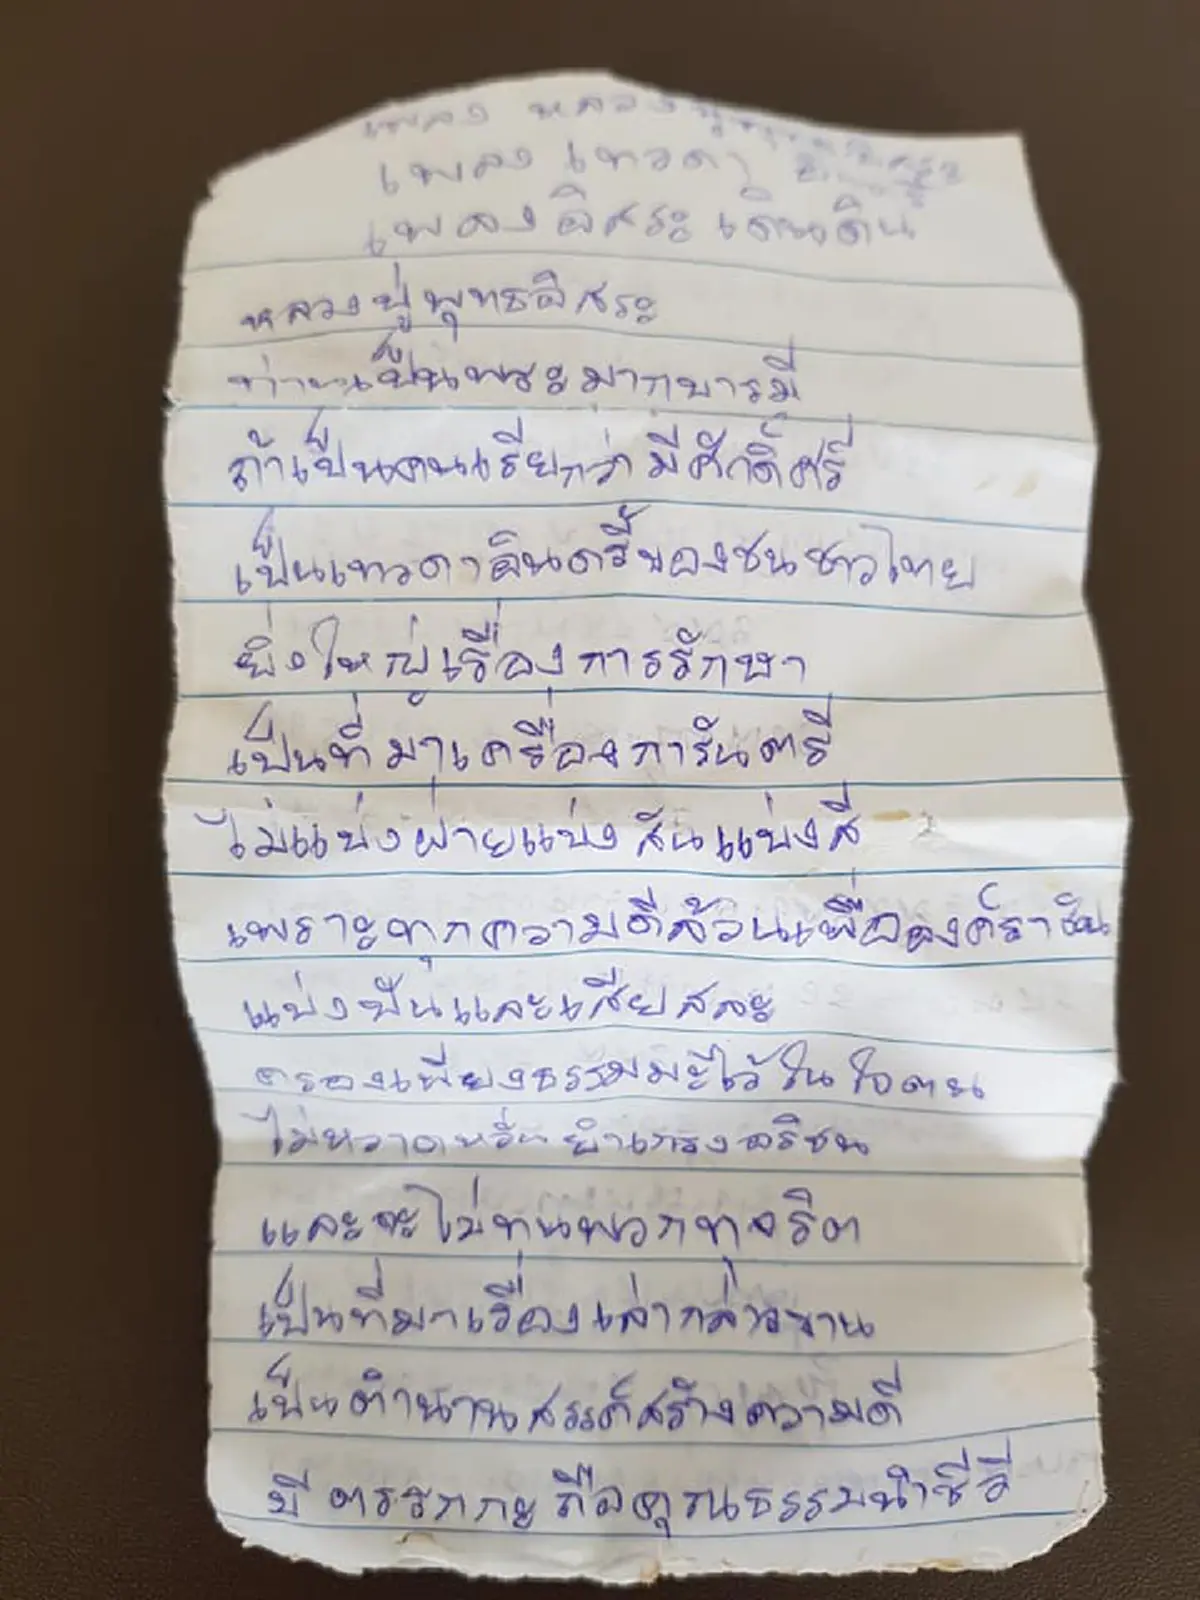 เพลง หลวงปู่
เพลง เทวดา
เพลง อิสระ เดินดิน
หลวงปู่พุทธอิสระ
ท่านเป็นพระมากบารมี
ถ้าเป็นคนเรียกว่า มีศักดิ์ศรี
เป็นเทวดาอินตรี้ของชนชาวไทย
ยิ่งใหญ่เรื่องการรักษา
เป็นที่มาเครื่องการันตรี
ไม่แบ่งฝ่ายแบ่ง สันแบ่งสี
เพราะทุกความดีล้วนเพื่อองค์ราชัน
แบ่งปันและเสียสละ
ครองเพียงธรรมมะไว้ในใจตน
ไม่หวาดหวั่น ยำเกรง อริชน
และจะไม่ทนพวกทุจริต
เป็นที่มาเรื่องเล่ากล่าวขาน
เป็นตำนานสรรค์สร้างความดี
มี ตรรกกะ ถือคุณธรรมนำชีวี